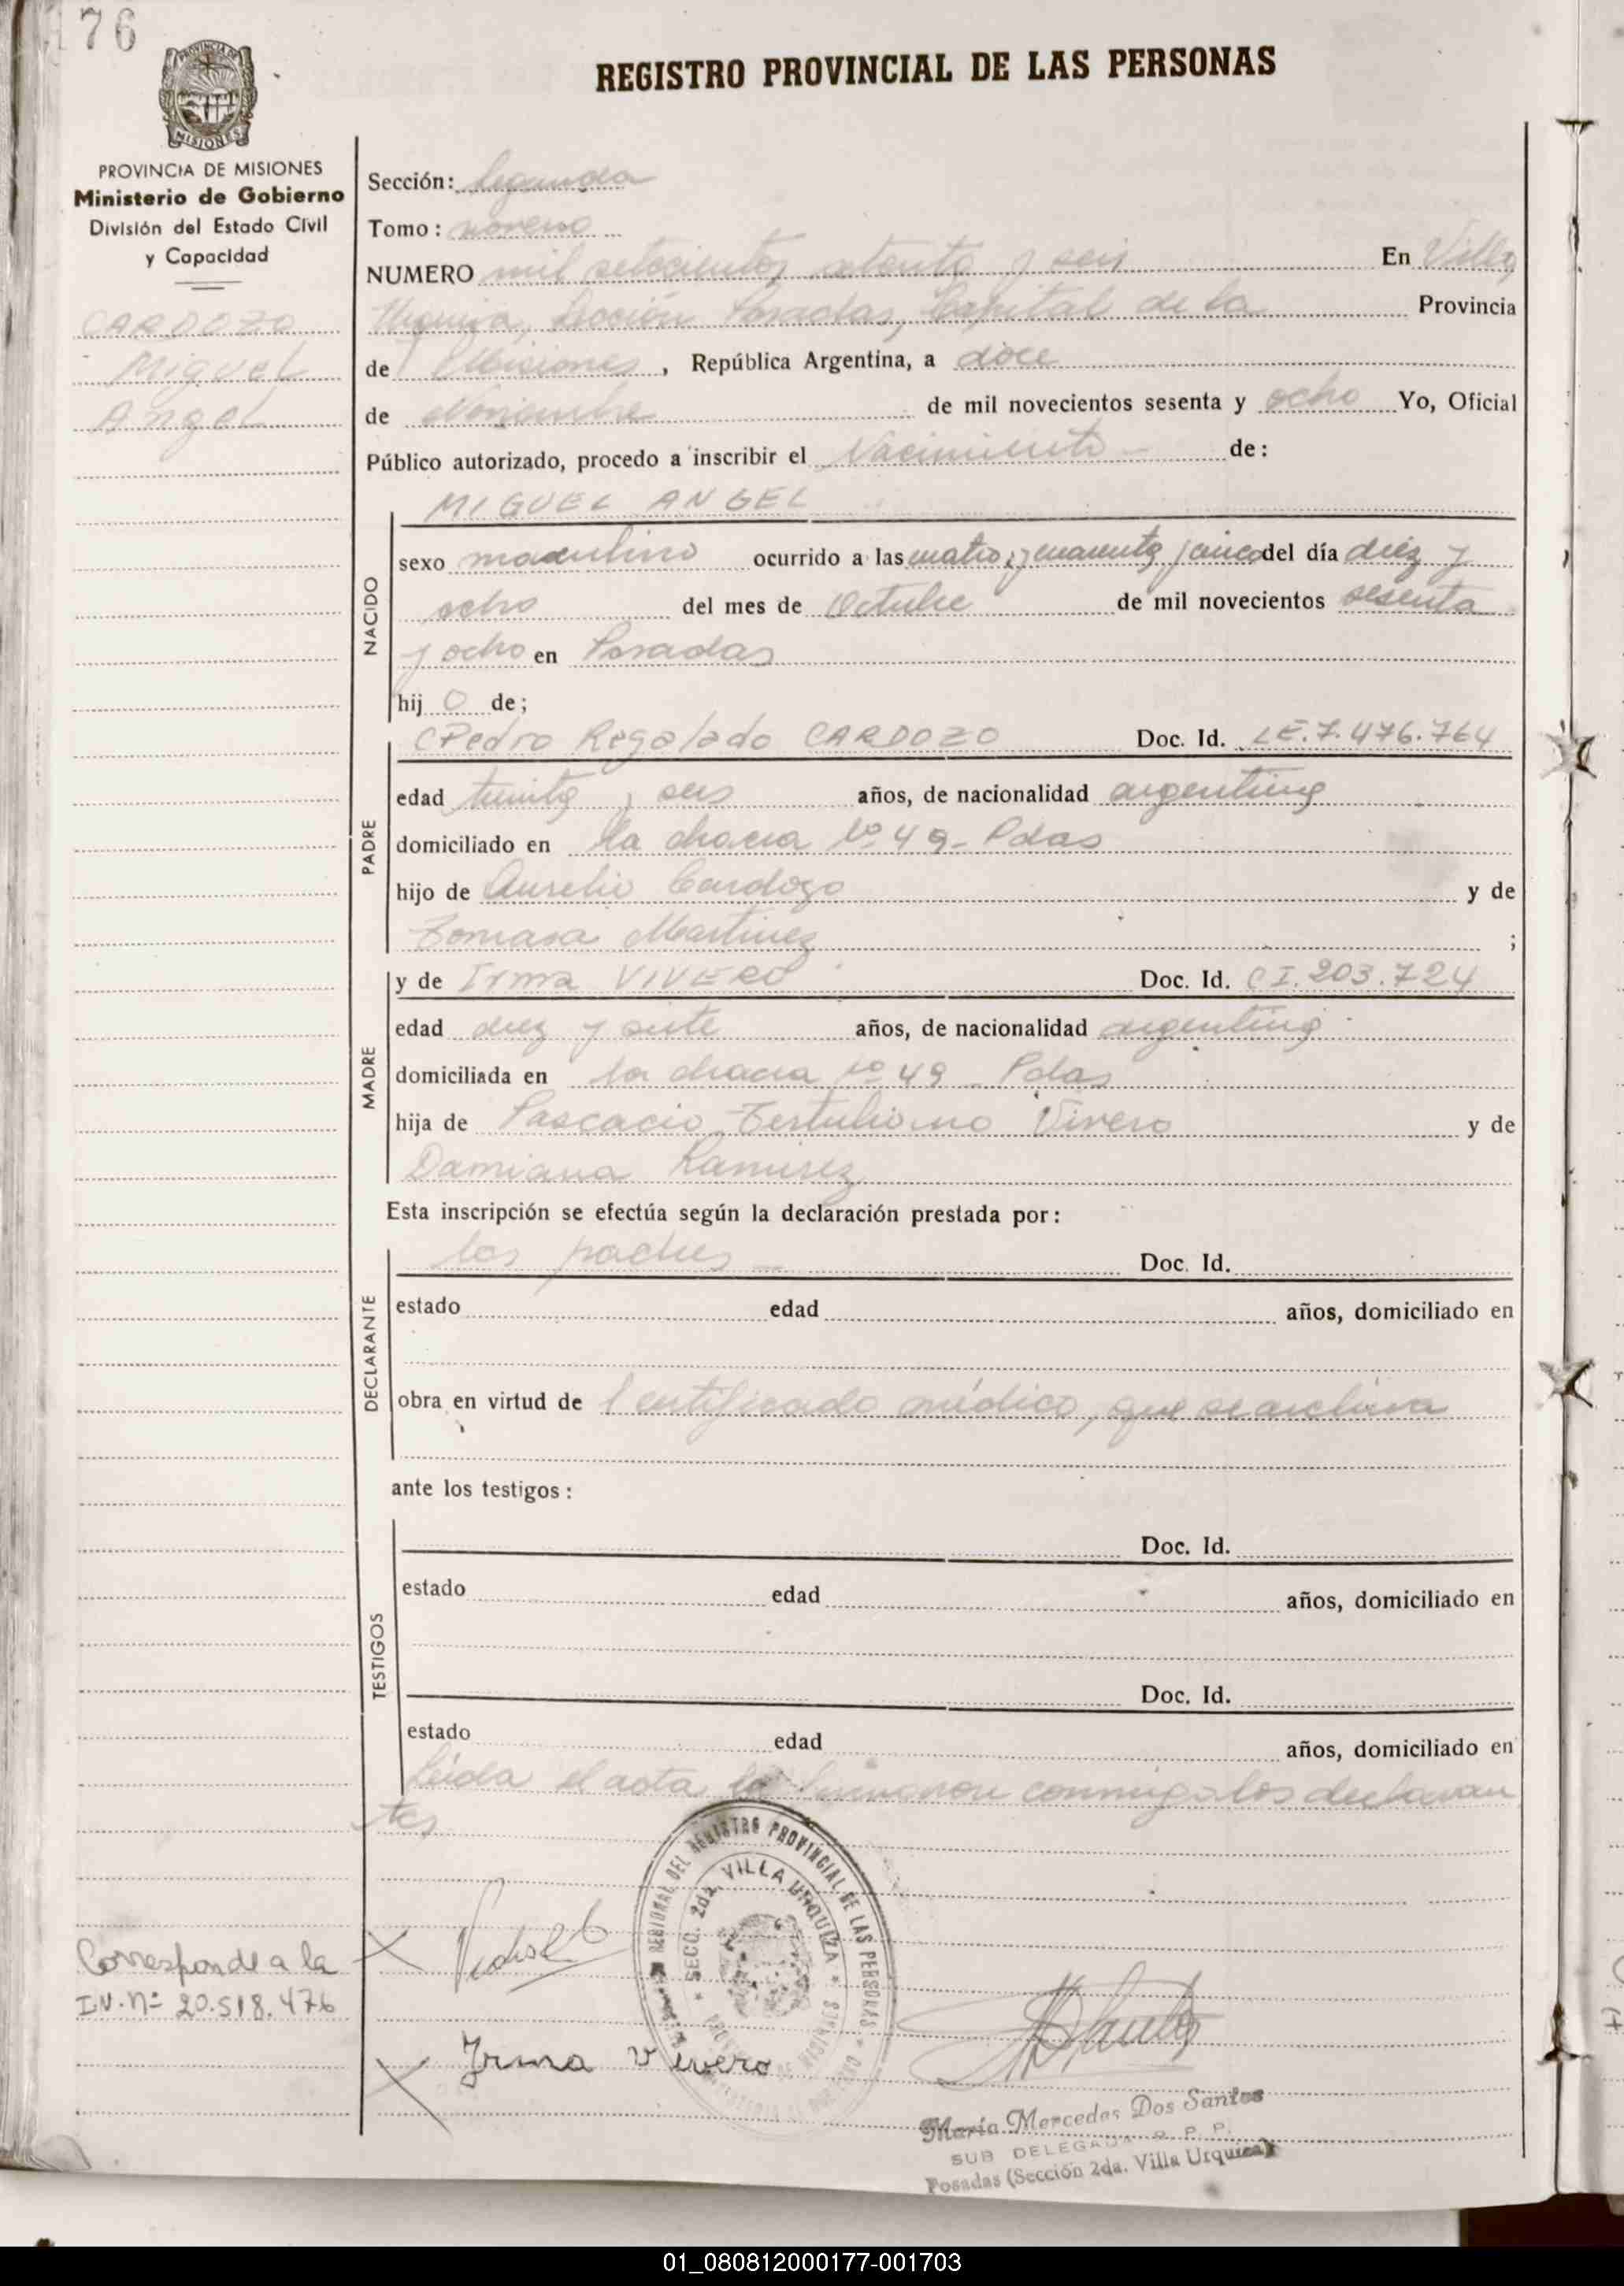 176
REGISTRO PROVINCIAL DE LAS PERSONAS
MISIONES
PROVINCIA DE MISIONES
Ministerio de Gobierno
División del Estado Civil
y Capacidad
CARDOZO
Miguel
Angel
Sección: Segunda
Tomo: noveno
NUMERO mil setecientos setenta y seis En Villa
Urquiza, Sección Posadas, Capital de la Provincia
de Misiones, República Argentina, a doce
de Noviembre de mil novecientos sesenta y ocho Yo, Oficial
Público autorizado, procedo a inscribir el Nacimiento - de:
MIGUEL ANGEL
NACIDO
sexo masculino ocurrido a las cuatro y cuarenta y cinco del día diez y
ocho del mes de Octubre de mil novecientos sesenta
y ocho en Posadas
hij o de;
PADRE
Pedro Regalado CARDOZO Doc. Id. LE.7.476.764
edad treinta y seis años, de nacionalidad argentina
domiciliado en la chacra Nº 49 - Pdas
hijo de Aurelio Cardozo y de
Tomasa Martinez ;
MADRE
y de Irma VIVERO Doc. Id. CI.203.724
edad diez y siete años, de nacionalidad argentina
domiciliada en la chacra Nº 49 - Pdas
hija de Pascacio Tertuliano Vivero y de
Damiana Ramirez
Esta inscripción se efectúa según la declaración prestada por:
DECLARANTE
los padres - Doc. Id.
estado edad años, domiciliado en
obra en virtud de Certificado médico, que se archiva
ante los testigos:
TESTIGOS
Doc. Id.
estado edad años, domiciliado en
Doc. Id.
estado edad años, domiciliado en
Leída el acta la firmaron conmigo los declaran
tes
REGIONAL DEL REGISTRO PROVINCIAL DE LAS PERSONAS
SECC. 2da. VILLA URQUIZA
Corresponde a la
I.N. Nº 20.518.476
Irma Vivero
María Mercedes Dos Santos
SUB DELEGADA R. P. P.
Posadas (Sección 2da. Villa Urquiza)
01_080812000177-001703